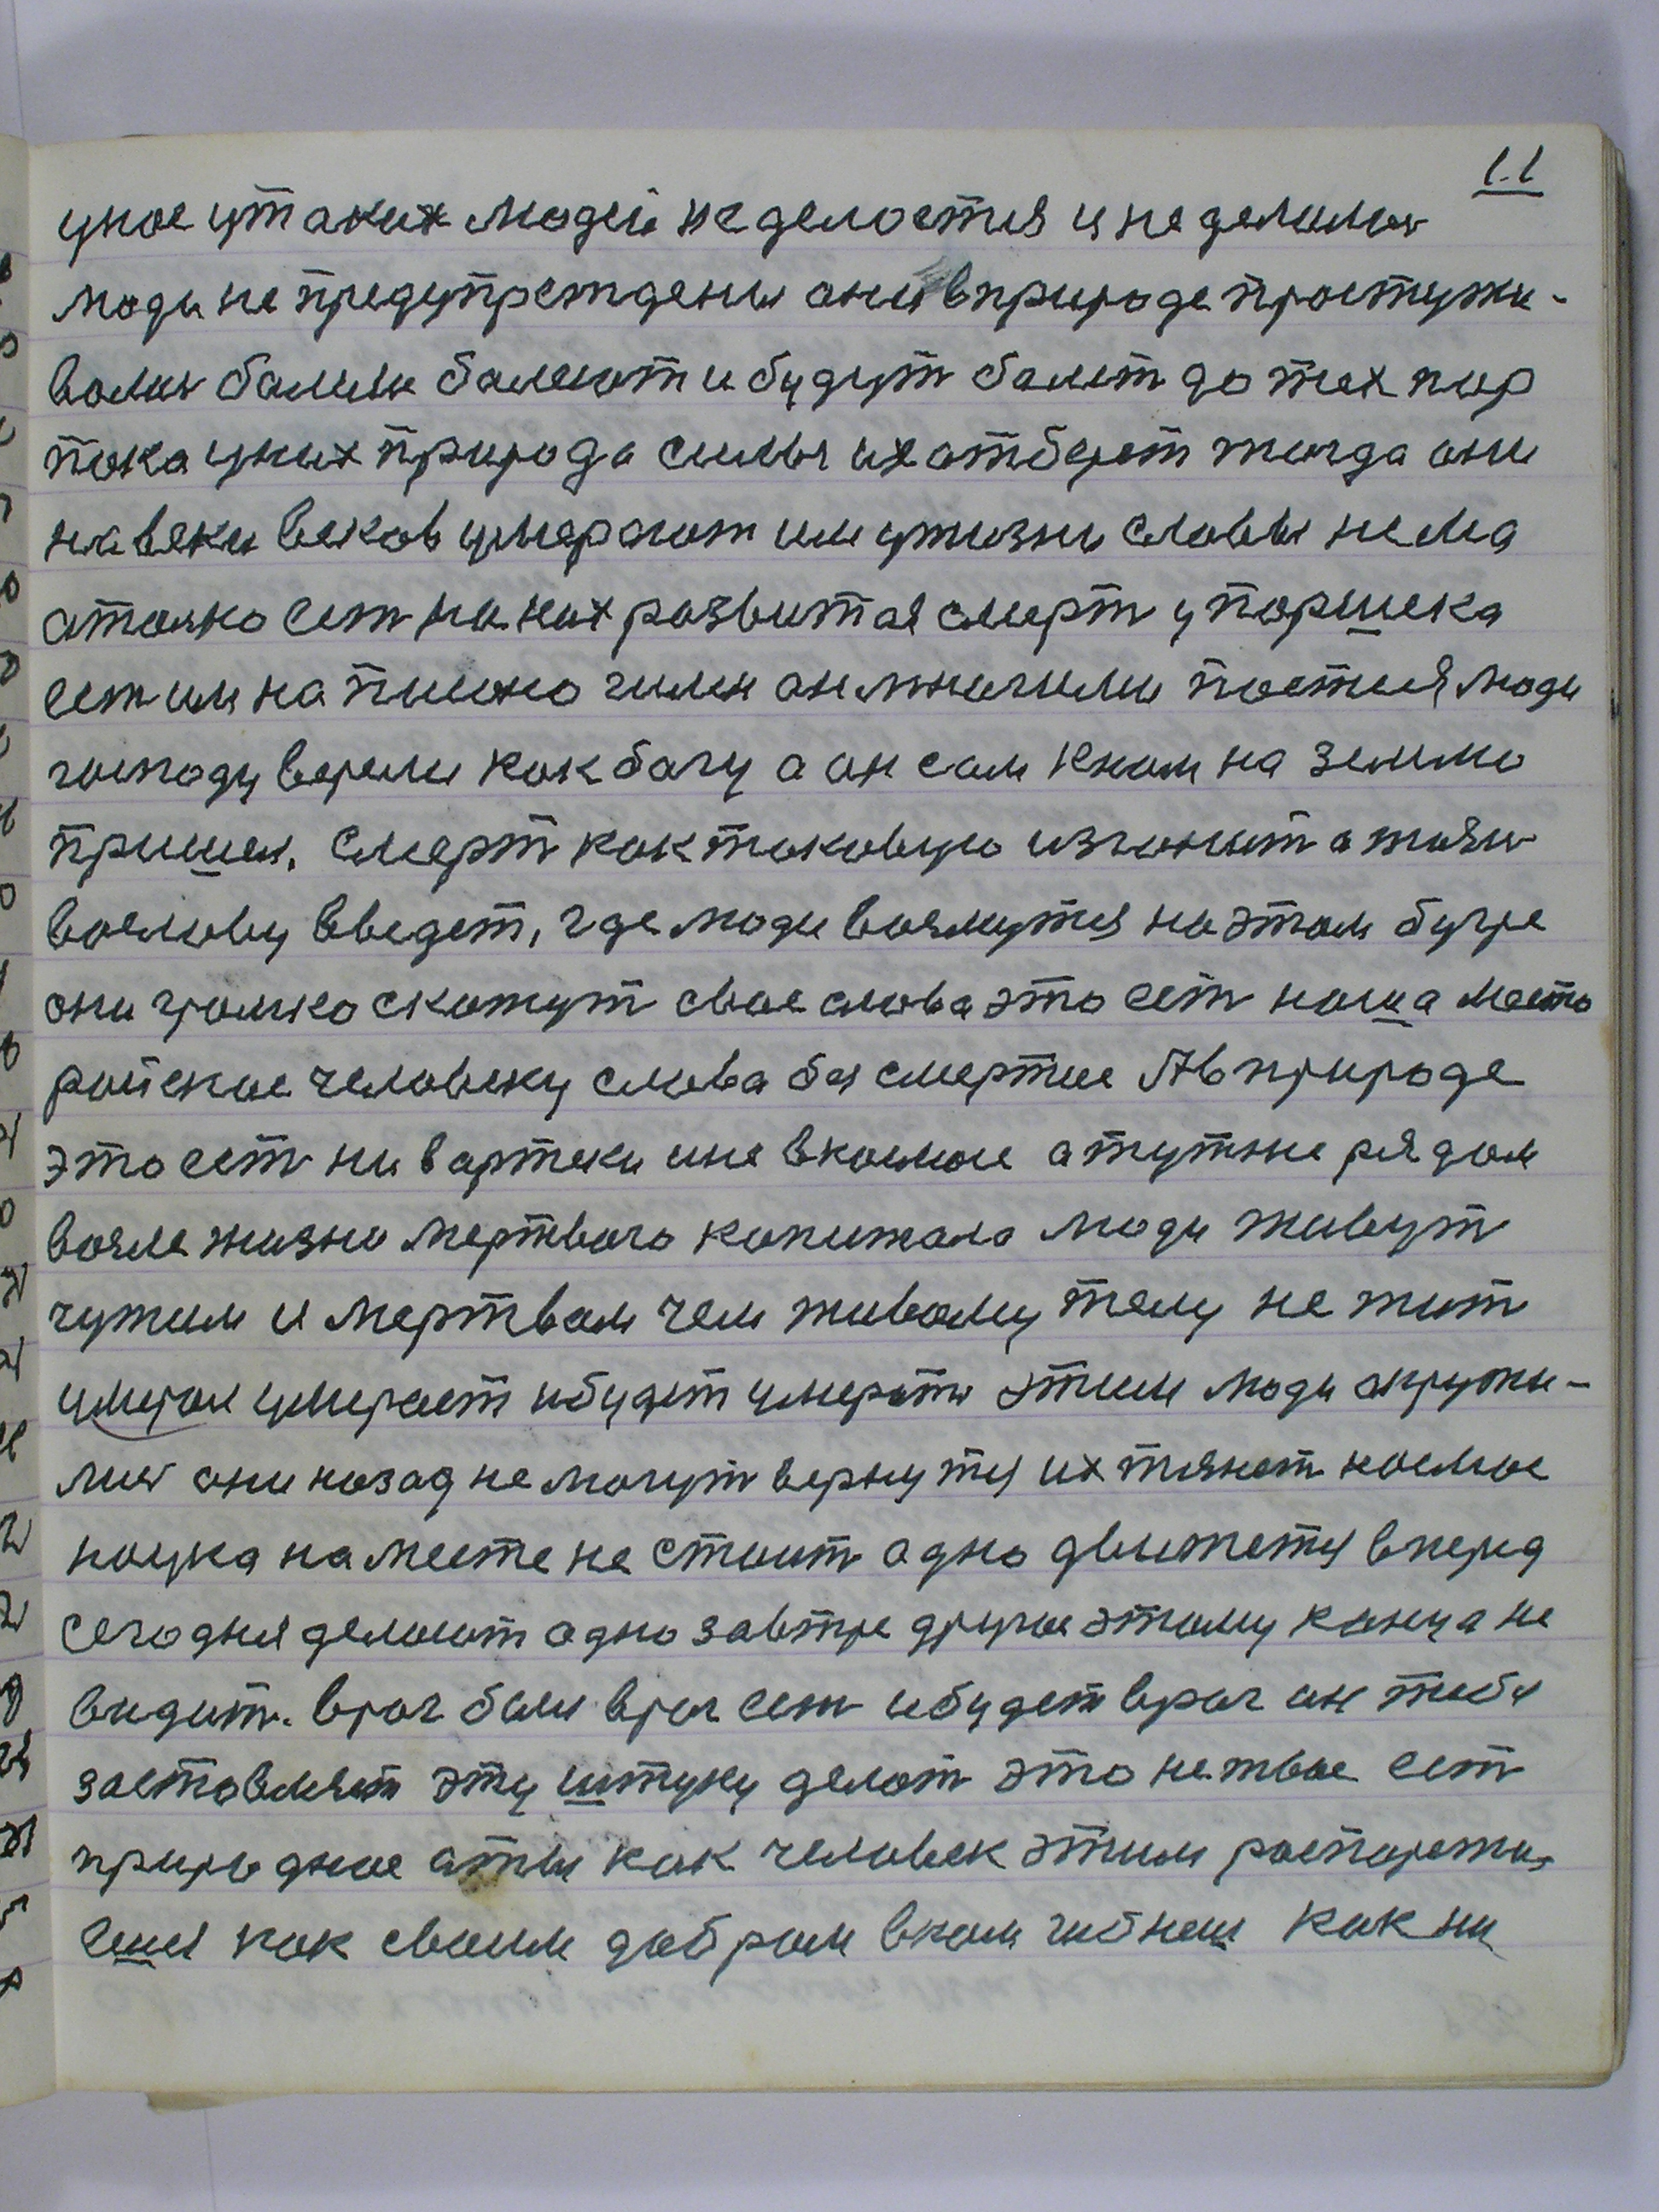 11
унос утаких людей не делается и не делалис
люди не предупреждены они вприроде простужи-
валис балели балеют и будут балет до тех пор
пока уних природа силы их отберет тогда они
на веки веков умерают им ужизни славы нема
атолко ест на них развитая смерт упоршека
ест им на пшоно
господу верели как богу а он сам кнам на землю
пришел, Смерт как таковую изгонит а жизн
воелову введет, где люди возмутся на этом бугре
они громко скажут свое слова это ест наша место
райское человеку слова бессмертие А вприроде
это ест ни вартеки и не вкосмосе а тутже рядом
возле жизни мертвого капитала люди живут
чужим и мертвам чем живому телу не жит
умерал умерает и будет умерать этим люди окружи-
лис они назад не могут вернутся их тянет космос
наука на месте не стоит одно движется вперед
сегодня делают одно завтре другое этому конца не
видит. враг был враг ест и будет враг он тебя
заставляет эту штуку делат это не твое ест
природное а ты как человек этим распоряжа-
ешся как своим добром вном гибнеш как ни